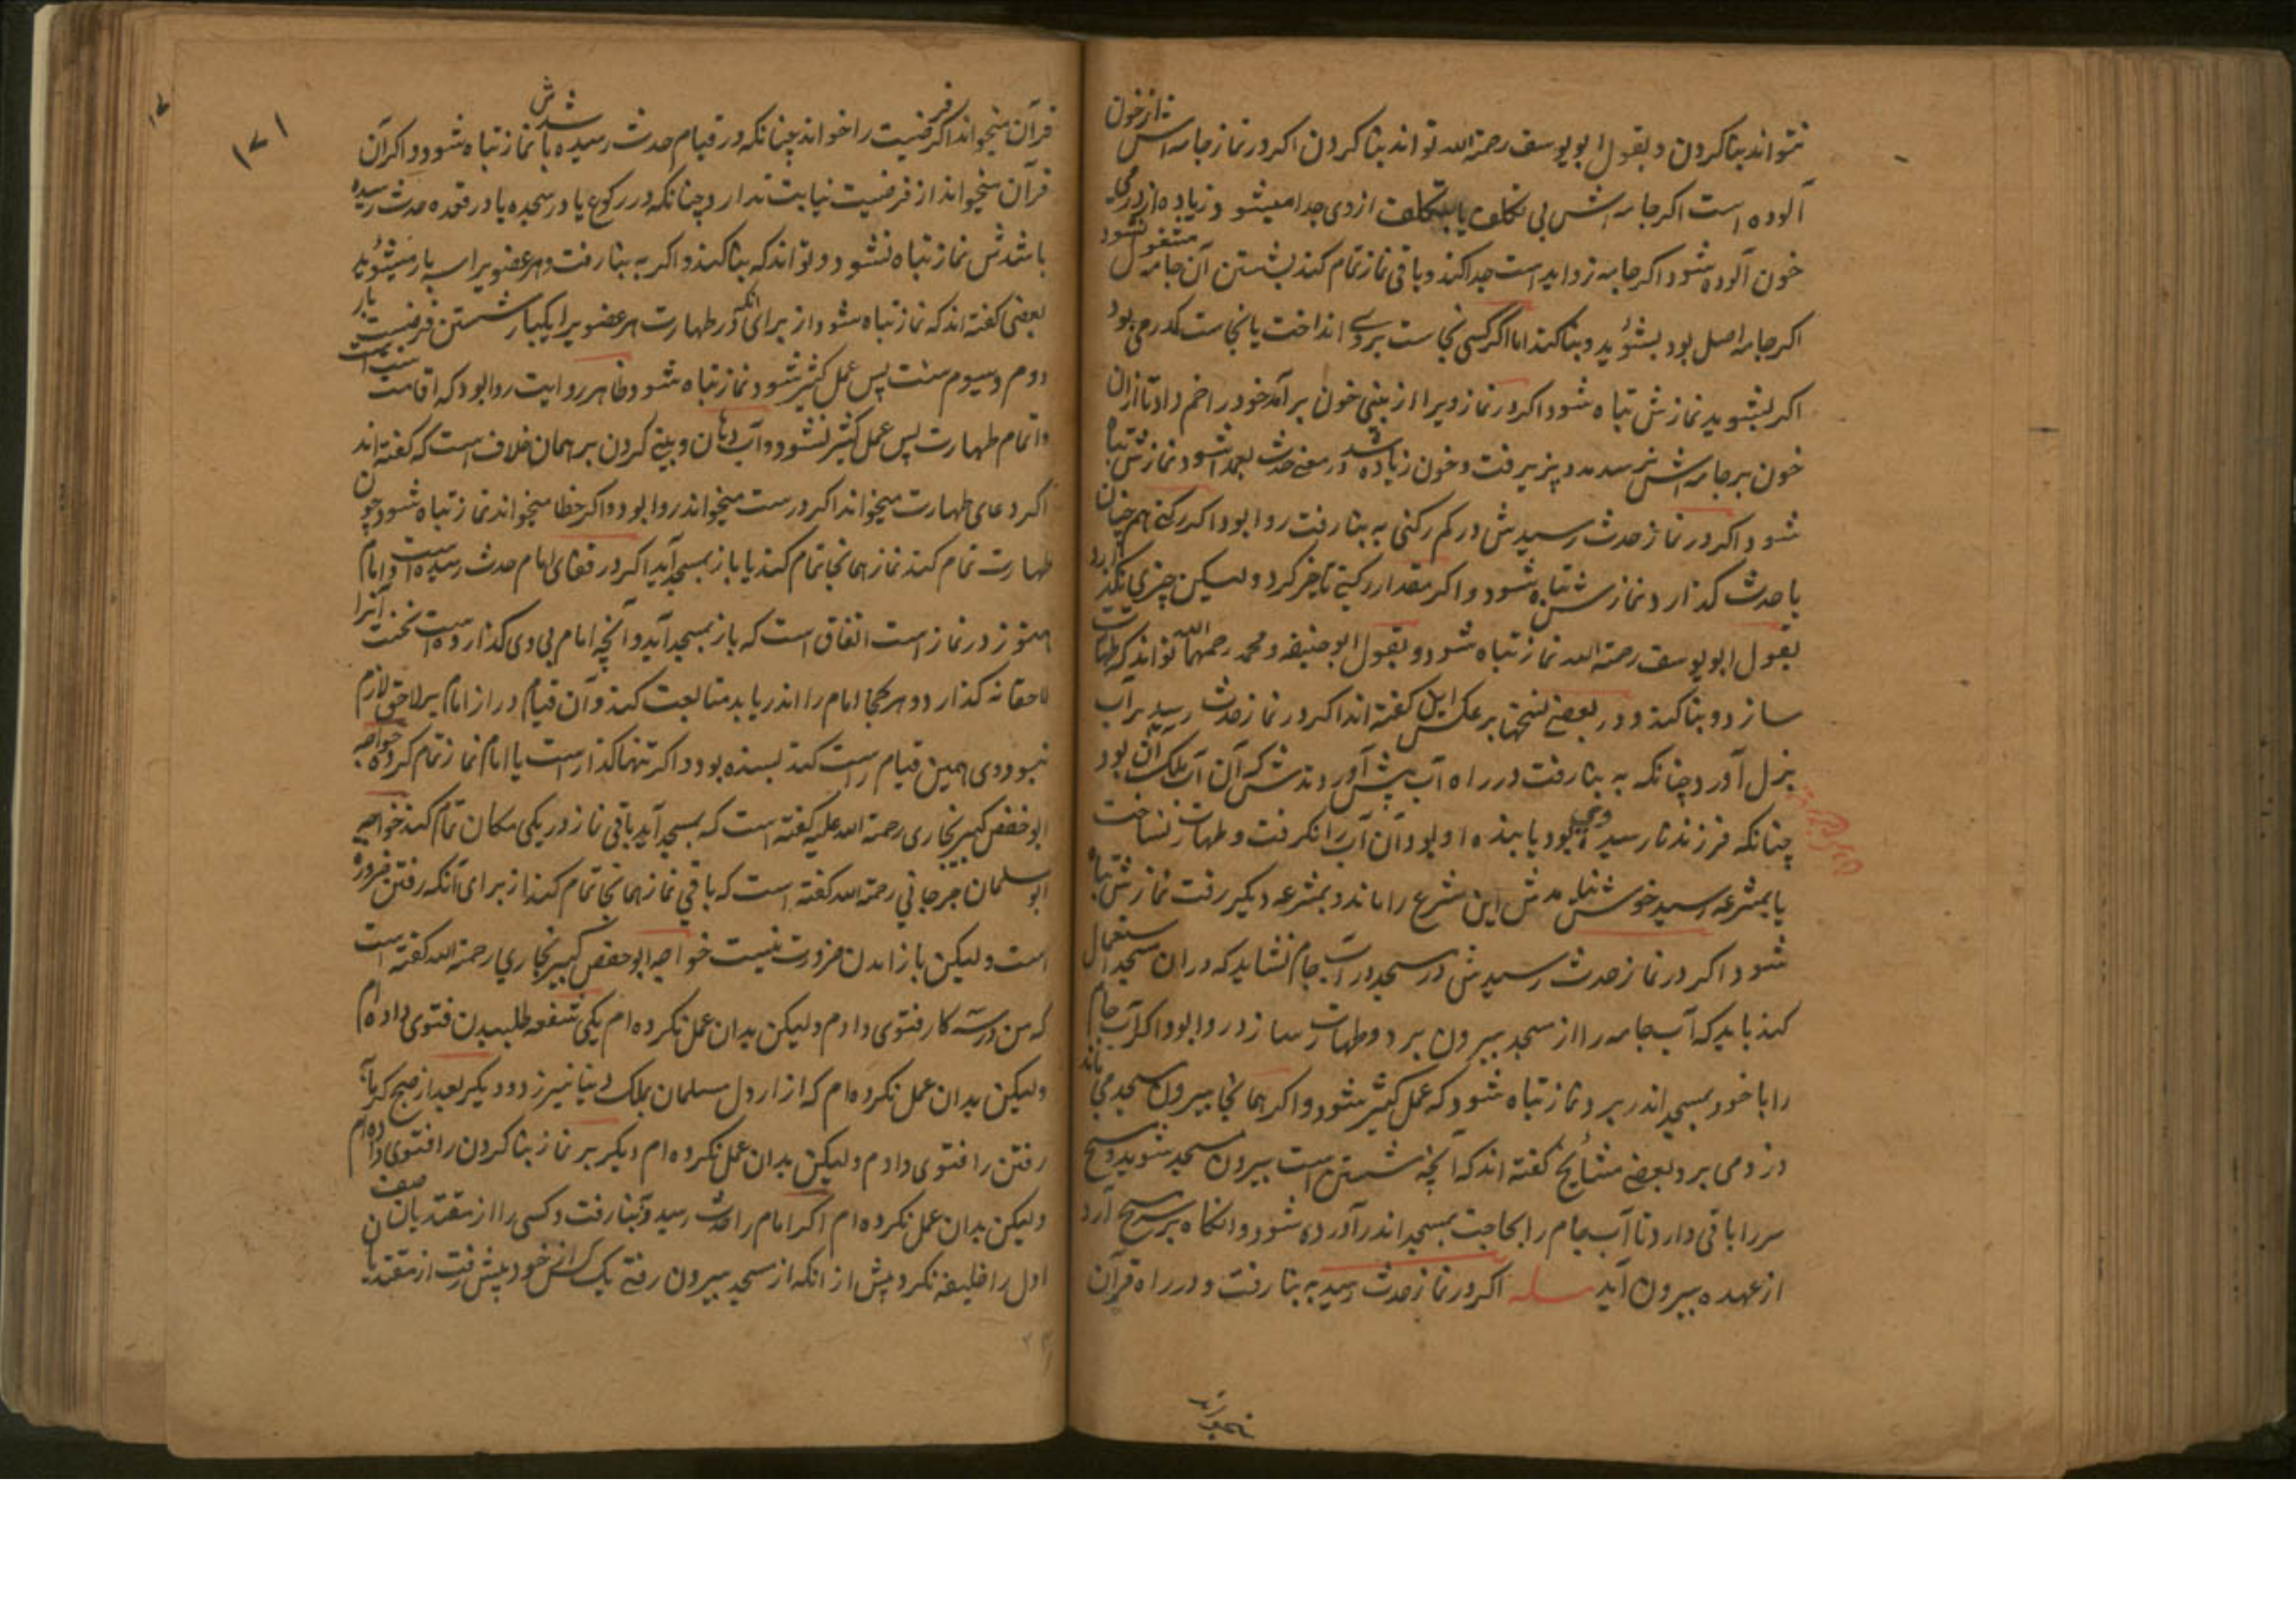 نتواند بنا کردن و بقول ابو یوسف رحمة الله تواند بنا کردن اکر در نماز جامه اش از خون
آلوده است اکر جامه اش بی تکلف یا بتکلف از وی جدا میشو و زیاده از درمی
خون آلوده شود اکر جامه زواید است جدا کند و باقی نماز تمام کند بشستن آن جامه مشغول نشود
اکر جامه اصل بود بشوید و بنا کند اما اکر کسی نجاست بروی انداخت یا نجاست که درمی بود
اکر بشوید نمازش تباه شود اکر در نماز ویرا از بینی خون برآمد خود را خم داد تا ازان
خون بر جامه اش نرسد مدد پذیرفت و خون زیاده شد در معنی حدث بعمد شود نمازش تباه
شود و اکر در نماز حدث رسیدش در کم رکنی به بنا رفت روا بود اکر رکنی هم چنان
با حدث کذارد نمازش تباه شود و اکر مقدار رکنی تاخیر کرد ولیکن چیزی نکذارد
بقول ابو یوسف رحمة الله نماز تباه شود و بقول ابو حنیفه و محمد رحمهما الله تواند که طهارت
سازد و بنا کند و در بعضی نسختها بر عکس این کفته اند اکر در نماز حدث رسید بر آب
نزل آورد چنانکه به بنا رفت در راه آب پیش آوردندش که آن آب ملک آن بود
چنانکه فرزند نارسیده وی بود یا بنده او بود آن آب را نکرفت و طهارت نساخت
یا بمشرعه رسید خوش نیامدش این مشرع را ماند و بمشرعه دیکر رفت نمازش تباه
شود اکر در نماز حدث رسیدش در مسجد در آب جام نشاید که دران مسجد استعمال
کند باید که آب جامه را از مسجد بیرون برد و طهارت سازد روا بود اکر آب جام
را با خود بمسجد اندر برد نماز تباه شود که عمل کثیر شود و اکر همانجا بیرون مسجد می ماند
دزد می برد و بعضی مشایخ کفته اند که آنچه شستن است بیرون مسجد شوید و مسح
سر را باقی دارد تا آب جام را بحاجت بمسجد اندر آورده شود و انکاه بر سر مسح آرد
از عهده بیرون آید مسله اکر در نماز حدث رسید به بنا رفت و در راه قرآن
قرآن میخواند اکر فرضیت را خواند چنانکه در قیام حدث رسیده باشدش نماز تباه شود و اکر آن
قرآن میخواند از فرضیت نیابت ندارد چنانکه در رکوع یا در سجده یا در قعده حدث رسیده
باشدش نماز تباه نشود و تواند که بنا کند و اکر به بنا رفت و هر عضویرا سه بار میشوید
بعضی کفته اند که نماز تباه شود از برای انکه در طهارت هر عضویرا یکبار شستن فرضست بار
دوم و سیوم سنت پس عمل کثیر شود نماز تباه شود و ظاهر روایت روا بود که اقامت سنت است
و اتمام طهارت پس عمل کثیر نشود و آب دهان و بینی کردن بر همان خلاف است که کفته اند
اکر دعای طهارت میخواند اکر درست میخواند روا بود و اکر خطا میخواند نماز تباه شود چون
طهارت تمام کند نماز همانجا تمام کند یا باز بمسجد آید اکر در قفای امام حدث رسیده است و امام
هنوز در نماز است اتفاق است که باز بمسجد آید و آنچه امام بی وی کذارده است نخست آنرا
لاحقانه کذارد و هر کجا امام را اندر یابد متابعت کند و آن قیام دراز امام بر لاحق لازم
نبود وی همین قیام راست کند بسنده بود و اکر تنها کذار است یا امام نماز تمام کرده خواجه
ابو حفص کبیر بخاری رحمة الله علیه کفته است که بمسجد آید باقی نماز در یکی مکان تمام کند خواجه
ابو سلمان جرجانی رحمة الله کفته است که باقی نماز همانجا تمام کند از برای آنکه رفتن ضرورة
است ولیکن باز آمدن ضرورت نیست خواجه ابو حفص کبیر بخاری رحمة الله کفته است
که من در سه کار فتوی دادم ولیکن بدان عمل نکرده ام یکی شفعه طلبیدن فتوی داده ام
ولیکن بدان عمل نکرده ام که آزار دل مسلمان بملک دنیا نیرزد و دیکر بعد از صبح کرمابه
رفتن را فتوی دادم ولیکن بدان عمل نکرده ام دیکر بر نماز بنا کردن را فتوی داده ام
ولیکن بدان عمل نکرده ام اکر امام را حدث رسید و به بنا رفت و کسی را از مقتدیان صف
اول را خلیفه نکرد پیش از انکه از مسجد بیرون رفتی یک کس از خود پیش رفت از مقتدیان
۱۷۱